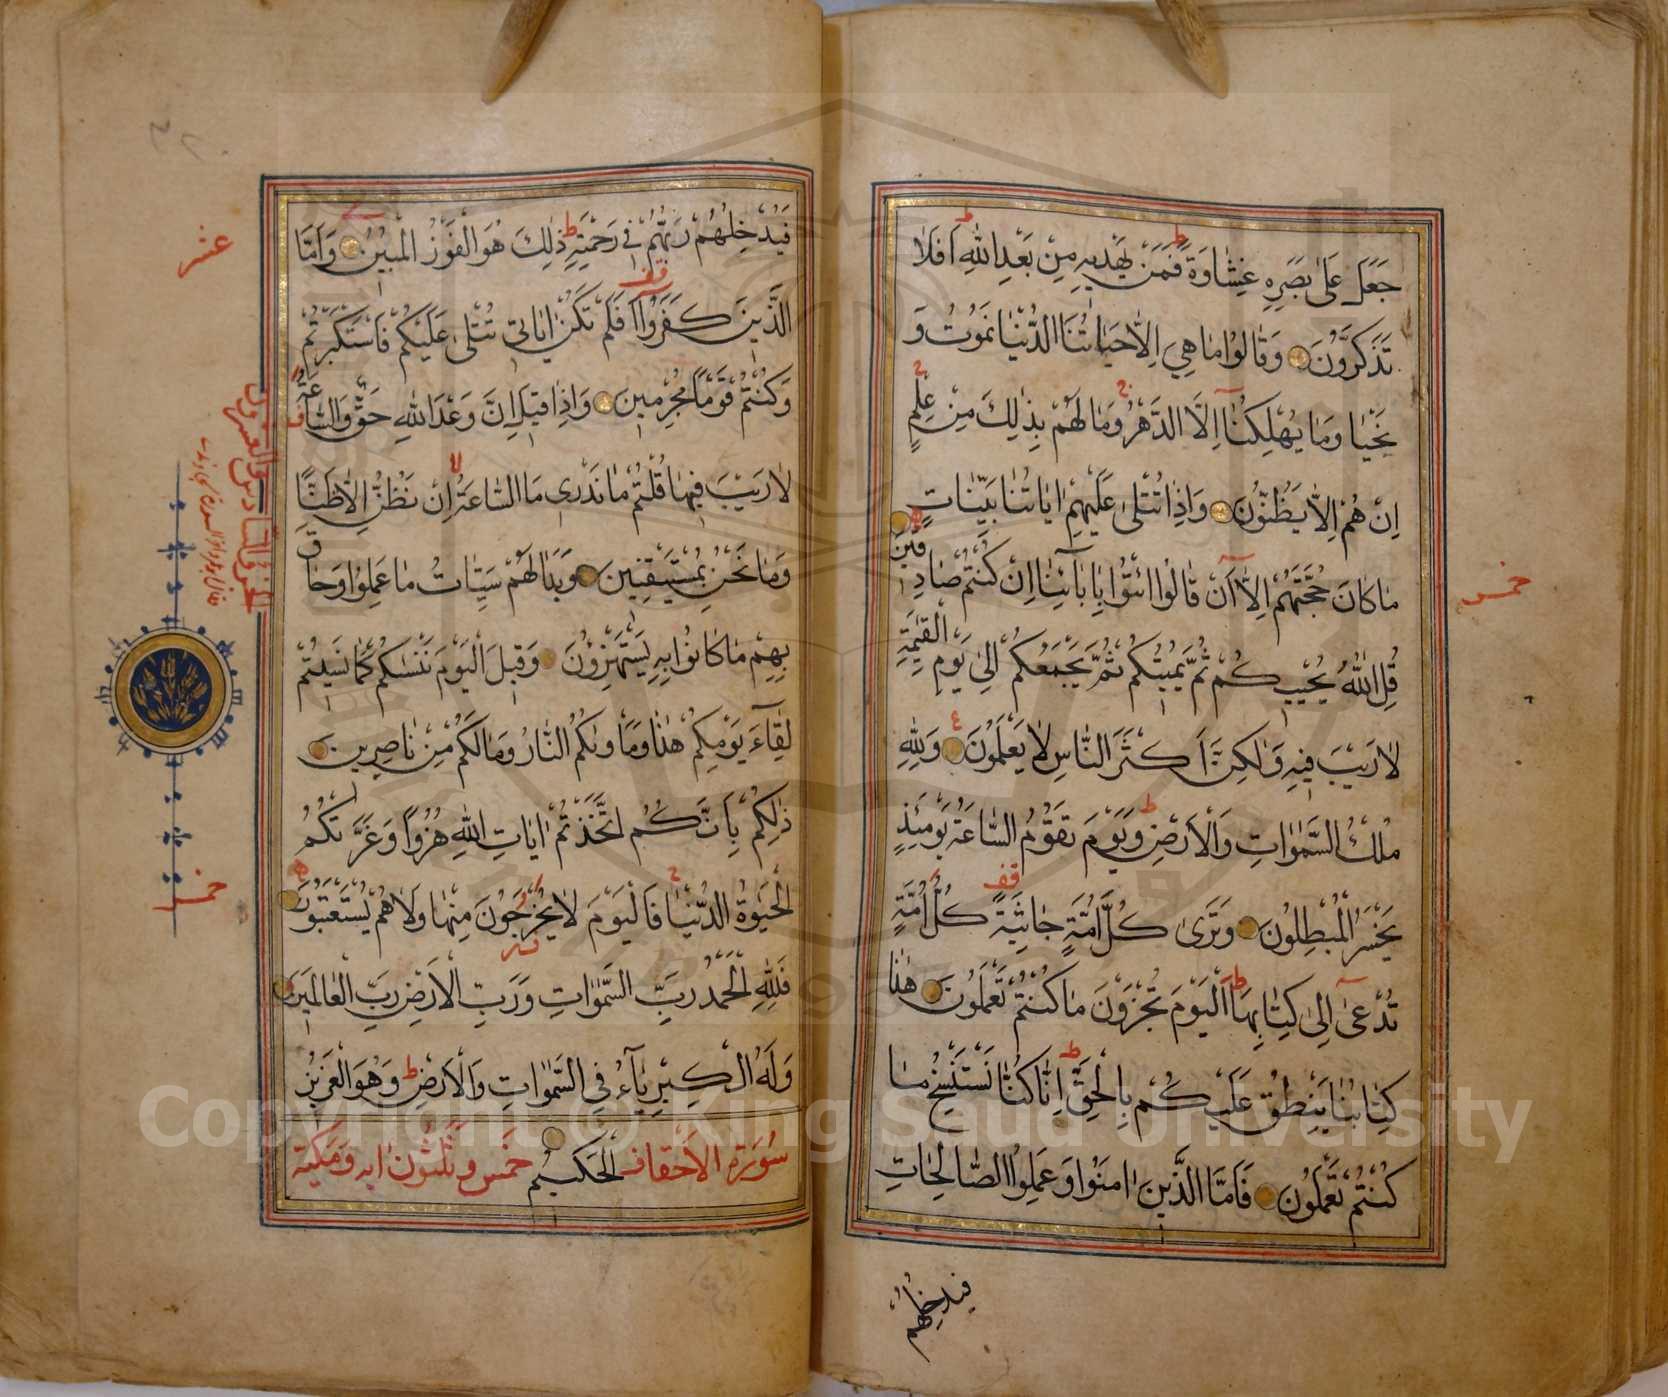 جَعَلَ عَلٰى بَصَرِهِ غِشَاوَةً فَمَنْ يَهْدِيهِ مِنْ بَعْدِ اللّٰهِ اَفَلَا
تَذَكَّرُونَ وَقَالُوا مَا هِيَ اِلَّا حَيَاتُنَا الدُّنْيَا نَمُوتُ وَ
نَحْيَا وَمَا يُهْلِكُنَا اِلَّا الدَّهْرُ وَمَا لَهُمْ بِذٰلِكَ مِنْ عِلْمٍ
اِنْ هُمْ اِلَّا يَظُنُّونَ وَاِذَا تُتْلٰى عَلَيْهِمْ اٰيَاتُنَا بَيِّنَاتٍ
مَا كَانَ حُجَّتَهُمْ اِلَّا اَنْ قَالُوا ائْتُوا بِاٰبَائِنَا اِنْ كُنْتُمْ صَادِقِينَ
قُلِ اللّٰهُ يُحْيِيكُمْ ثُمَّ يُمِيتُكُمْ ثُمَّ يَجْمَعُكُمْ اِلٰى يَوْمِ الْقِيٰمَةِ
لَا رَيْبَ فِيهِ وَلٰكِنَّ اَكْثَرَ النَّاسِ لَا يَعْلَمُونَ وَلِلّٰهِ
مُلْكُ السَّمٰوَاتِ وَالْاَرْضِ وَيَوْمَ تَقُومُ السَّاعَةُ يَوْمَئِذٍ
يَخْسَرُ الْمُبْطِلُونَ وَتَرٰى كُلَّ اُمَّةٍ جَاثِيَةً كُلُّ اُمَّةٍ
تُدْعٰى اِلٰى كِتَابِهَا اَلْيَوْمَ تُجْزَوْنَ مَا كُنْتُمْ تَعْمَلُونَ هٰذَا
كِتَابُنَا يَنْطِقُ عَلَيْكُمْ بِالْحَقِّ اِنَّا كُنَّا نَسْتَنْسِخُ مَا
كُنْتُمْ تَعْمَلُونَ فَاَمَّا الَّذِينَ اٰمَنُوا وَعَمِلُوا الصَّالِحَاتِ
فيدخلهم
خمس
فَيُدْخِلُهُمْ رَبُّهُمْ فِي رَحْمَتِهِ ذٰلِكَ هُوَ الْفَوْزُ الْمُبِينُ وَاَمَّا
الَّذِينَ كَفَرُوا اَفَلَمْ تَكُنْ اٰيَاتِي تُتْلٰى عَلَيْكُمْ فَاسْتَكْبَرْتُمْ
وَكُنْتُمْ قَوْمًا مُجْرِمِينَ وَاِذَا قِيلَ اِنَّ وَعْدَ اللّٰهِ حَقٌّ وَالسَّاعَةُ
لَا رَيْبَ فِيهَا قُلْتُمْ مَا نَدْرِي مَا السَّاعَةُ اِنْ نَظُنُّ اِلَّا ظَنًّا
وَمَا نَحْنُ بِمُسْتَيْقِنِينَ وَبَدَا لَهُمْ سَيِّئَاتُ مَا عَمِلُوا وَحَاقَ
بِهِمْ مَا كَانُوا بِهِ يَسْتَهْزِؤُنَ وَقِيلَ الْيَوْمَ نَنْسٰيكُمْ كَمَا نَسِيتُمْ
لِقَاءَ يَوْمِكُمْ هٰذَا وَمَأْوٰيكُمُ النَّارُ وَمَا لَكُمْ مِنْ نَاصِرِينَ
ذٰلِكُمْ بِاَنَّكُمُ اتَّخَذْتُمْ اٰيَاتِ اللّٰهِ هُزُوًا وَغَرَّتْكُمُ
الْحَيٰوةُ الدُّنْيَا فَالْيَوْمَ لَا يُخْرَجُونَ مِنْهَا وَلَا هُمْ يُسْتَعْتَبُونَ
فَلِلّٰهِ الْحَمْدُ رَبِّ السَّمٰوَاتِ وَرَبِّ الْاَرْضِ رَبِّ الْعَالَمِينَ
وَلَهُ الْكِبْرِيَاءُ فِي السَّمٰوَاتِ وَالْاَرْضِ وَهُوَ الْعَزِيزُ
سُورَةُ الْاَحْقَافِ الْحَكِيمُ خَمْسٌ وَثَلٰثُونَ اٰيَه وَمَكِّيَّة
عشر
الجزؤ السادس والعشرون
خمس
Copyright © King Saud University